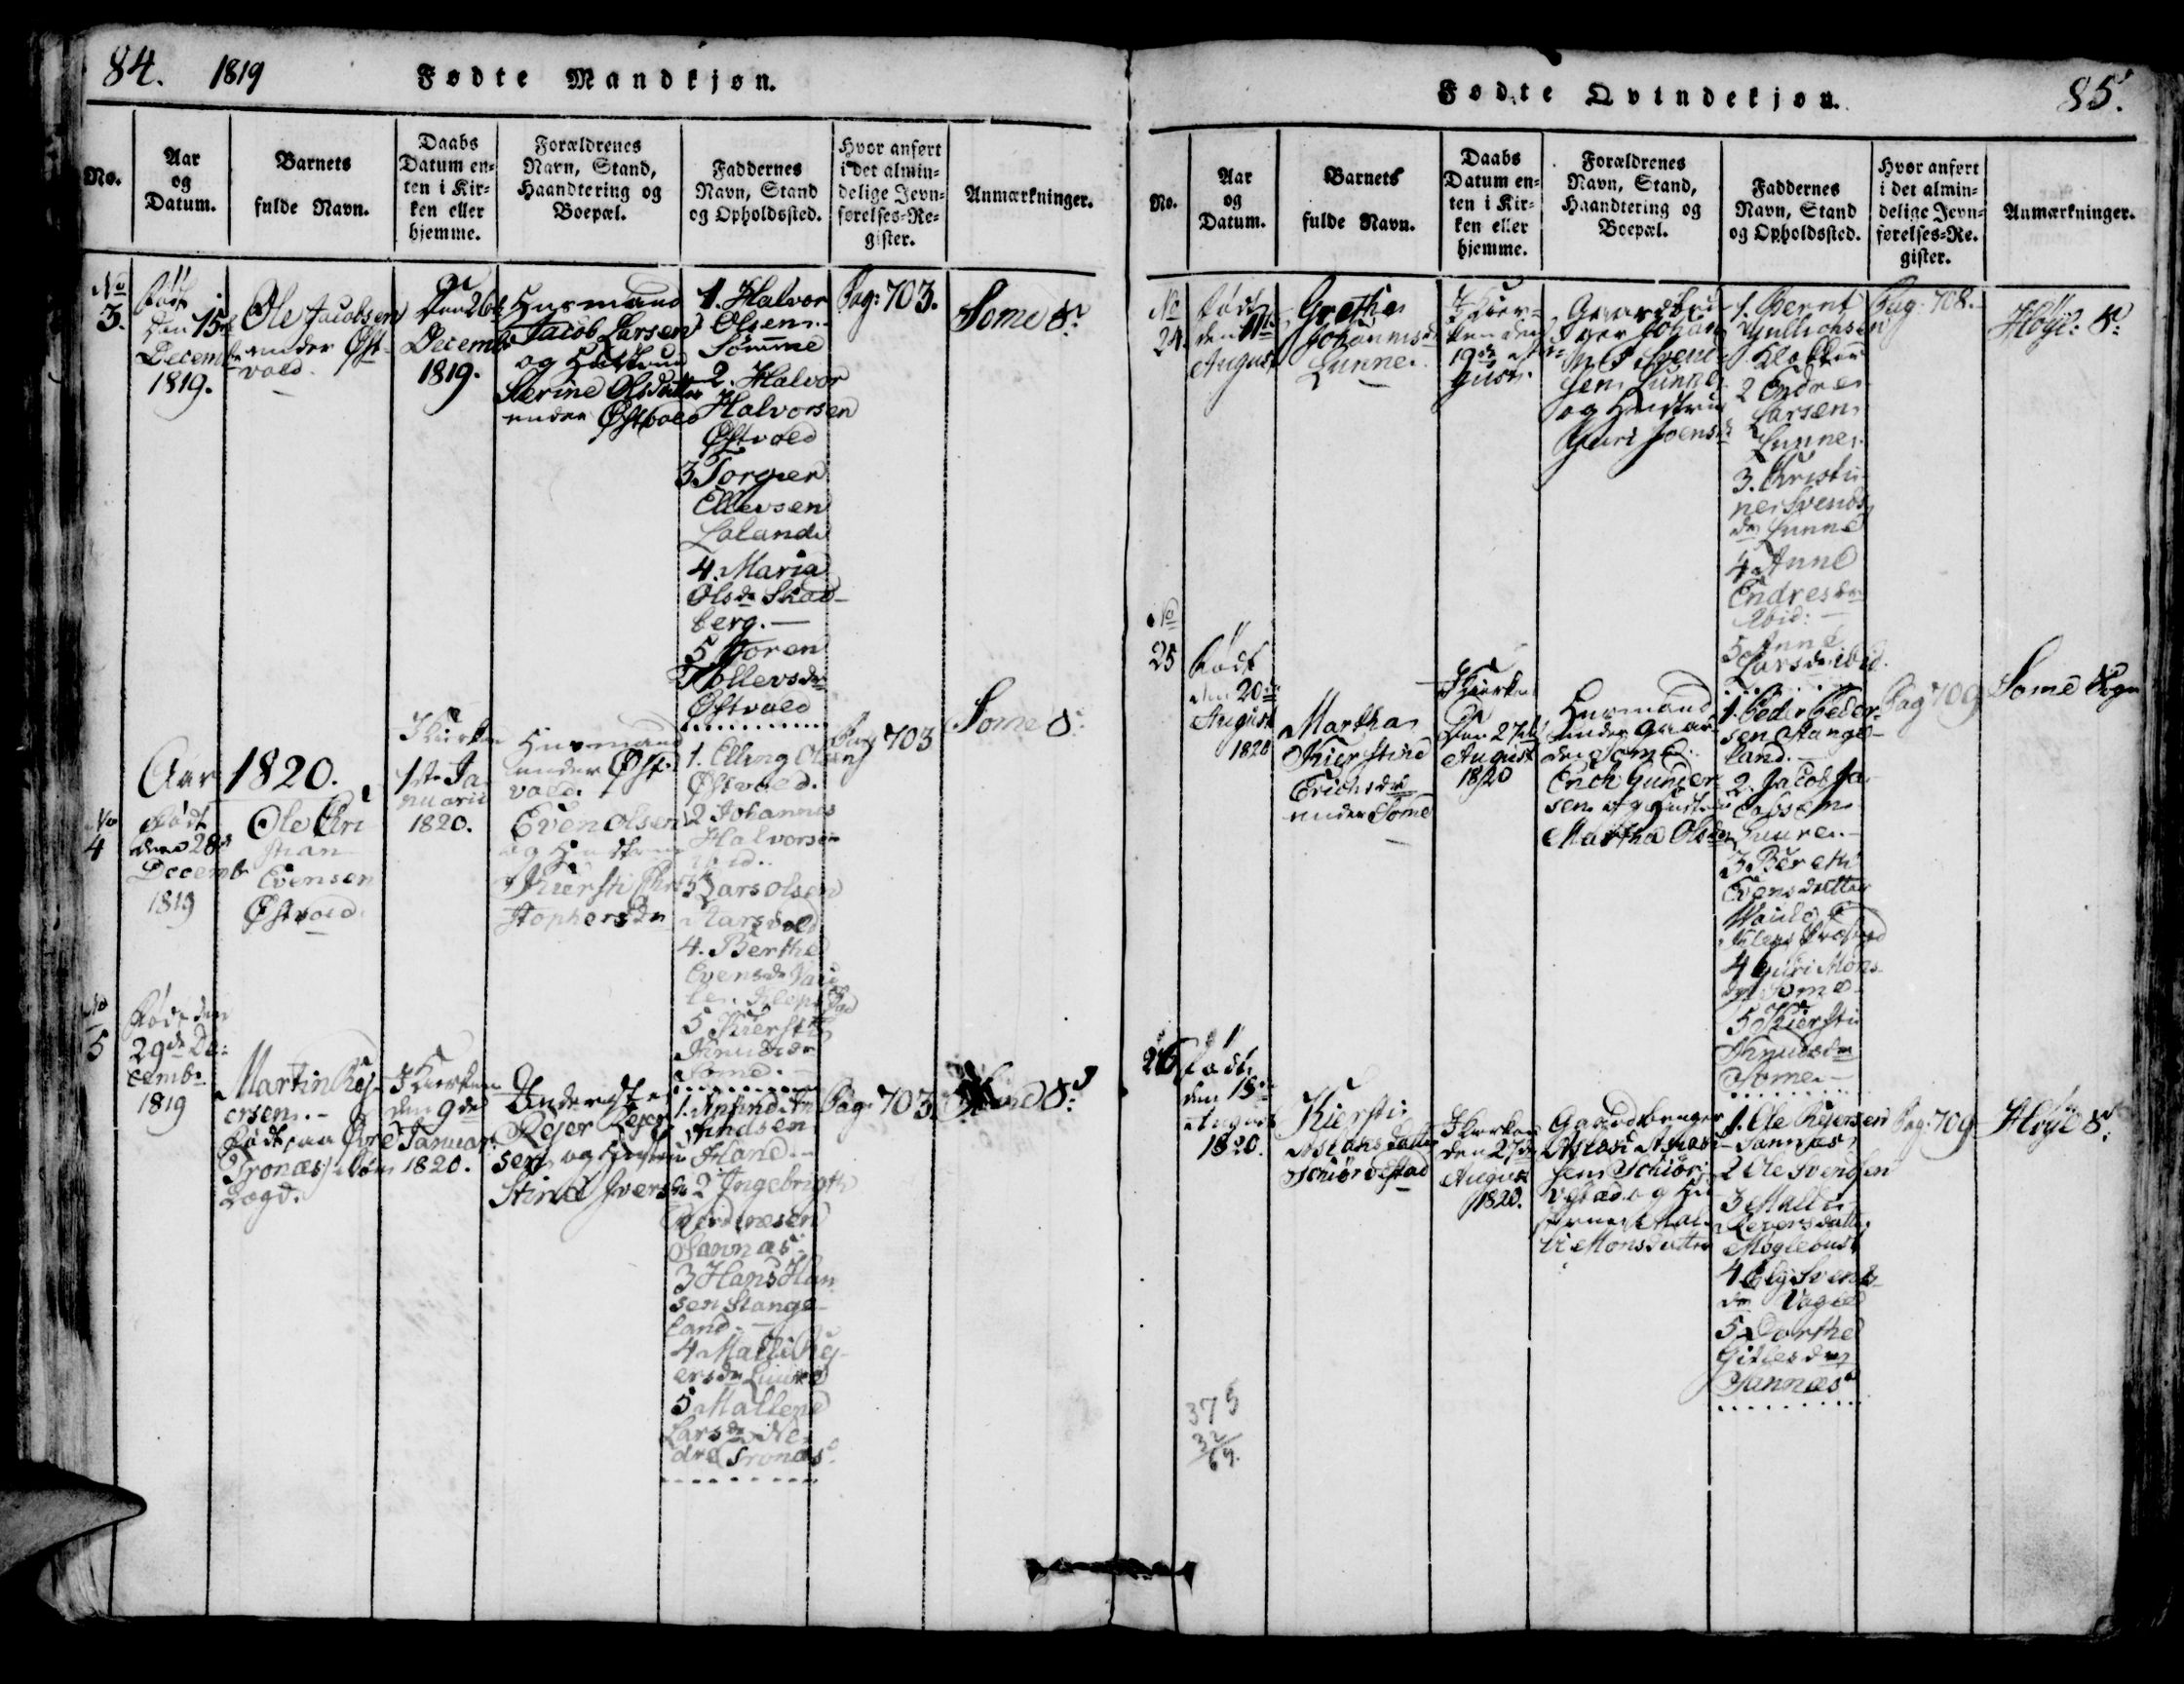 84. 1819 Fødte Mandkjøn.
No.
Aar
og
Datum.
Barnets
fulde Navn.
Daabs
Datum en-
ten i Kir-
ken eller
hjemme.
Forældrenes
Navn, Stand,
Haandtering og
Boepæl.
Faddernes
Navn, Stand
og Opholdssted.
Hvor anført
i det almin-
delige Jevn-
førelses-Re-
gister.
Anmærkninger.
No
3.
Født
den 15de
Decembr
1819.
Ole Jacobsen
under Øst-
vold.
Den 26de
Decembr
1819.
Huusmand
Jacob Larsen
og Hustrue
Serine Olsdatter
under Østvold
1. Halvor
Olsen
Somme
2. Halvor
Halvorsen
Østvold
3. Torger
Ellevsen
Lalande
4. Maria
Olsdr Skad-
berg.
5 Joren
Tollevsdr
Østvold
Pag: 703.
Some S.
Aar 1820.
No
4
Født
den 28de
Decembr
1819
Ole Chri
stian
Evensen
Østvold.
I Kierken
1ste Ja-
nuarii
1820.
Huusmand
under Øst-
vold.
Even Olsen
og Hustrue
Kiersti Chri
stophersdr
1. Elling Olsen
Østvold.
2 Johannes
Halvorsen
ibid.
3 Lars Olsen
Aarsvold
4. Berthe
Evensdr
5 Kiersti
Knudsdr
Some.
Pag 703
Some S.
No
5
Født den
29de De-
cembr
1819
Martin Rej-
ersen.
Født paa Øvre
Tronæs
Lægd.
I Kierken
den 9de
Januar
1820.
Underofft.
Rejer Rejer
sen og Hustrue
Stine Iversdr
1. Amund A
mundsen
Hane.
2 Ingebrigth
Sannæs
3 Hans Han
sen Stange-
land.
4 Malli Rej-
ersdr Luure
5 Mallene
Larsdr Ne-
dre Tronæs.
Pag: 703.
S.
Fødte Qvindekjøn. 85.
No.
Aar
og
Datum.
Barnets
fulde Navn.
Daabs
Datum en-
ten i Kir-
ken eller
hjemme.
Forældrenes
Navn, Stand,
Haandtering og
Boepæl.
Faddernes
Navn, Stand
og Opholdssted.
Hvor anført
i det almin-
delige Jevn-
førelses-Re-
gister.
Anmærkninger.
No
24.
Født
den 11te
August
Grethe
Johannisdr
Lunne.
I Kier-
ken den
19de Au-
gust.
Gaardbru
ger Johan
nes Svend-
sen Lunne
og Hustrue
Guri Joensdr
1. Bernt
Gullichsen
Klokker
2 Endre
Larsen
Lunne.
3. Christi
ne Svends
dr Lunne
4 Anne
Endresdr
ibid:
5 Anne
Larsdr ibid.
Pag: 708.
Høyl: S.
No
25
Født
den 20de
August
1820
Martha
Kierstine
Erichsdr
under Some
I Kierken
den 27de
August
1820
Huusmand
under Gaar
den Some
Erich Gunder
sen og Hustrue
Martha Olsdr
1. Peder Peder-
sen Stange-
land.
2. Jacob Ja-
cobsen
Luure.
3 Berethe
Evensdatter
4 Guri Mons
dr Some
5 Kiersti
Knudsdr
Some.
Pag 709
Some Sogn
26
Født
den 15de
August
1820.
Kiersti
Aslachsdatter
Schiørvestad
I Kierken
den 27de
August
1820.
Gaardbruger
Schiør-
vestad og Hu
struen Mal-
li Monsdatter
1. Ole Rejersen
Sannæs
2 Ole Svendsen
3 Malli
Rejersdatter
Møglebust
4 Elj Svends
dr Vagle
5 Dorthe
Gitlesdr
Sannæs
Pag: 709
Høyl S.
375
32
69.